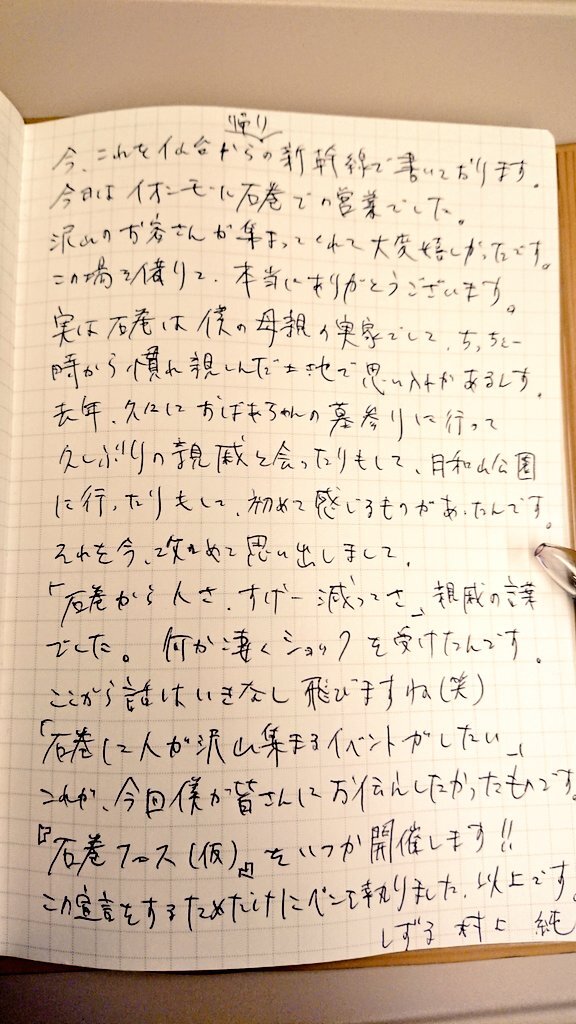 今、これを仙台からの帰り新幹線で書いております。
今日はイオンモール石巻での営業でした。
沢山のお客さんが集まってくれて大変嬉しかったです。
この場を借りて、本当にありがとうございます。
実は石巻は僕の母親の実家でして、ちっちゃい
時から慣れ親しんだ土地で思い入れがあるんす。
去年、久々におばあちゃんの墓参りに行って
久しぶりの親戚と会ったりもして、日和山公園
に行ったりもして、初めて感じるものがあったんです。
それを今、改めて思い出しまして、
「石巻から人さ、すげー減ってさ」親戚の言葉
でした。何か凄くショックを受けたんです。
ここから話はいきなし飛びますね(笑)
「石巻に人が沢山集まるイベントがしたい」
これが、今回僕が皆さんにお伝えしたかったものです。
『石巻フェス(仮)』をいつか開催します!!
この宣言をするためだけにペンを執りました。以上です。
しずる 村上 純